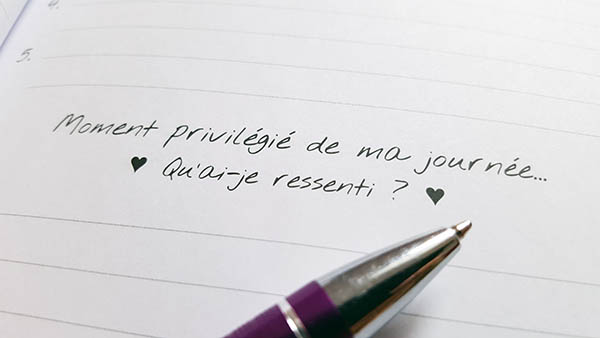 4.
5.
Moment privilégié de ma journée...
♥ Qu'ai-je ressenti ? ♥